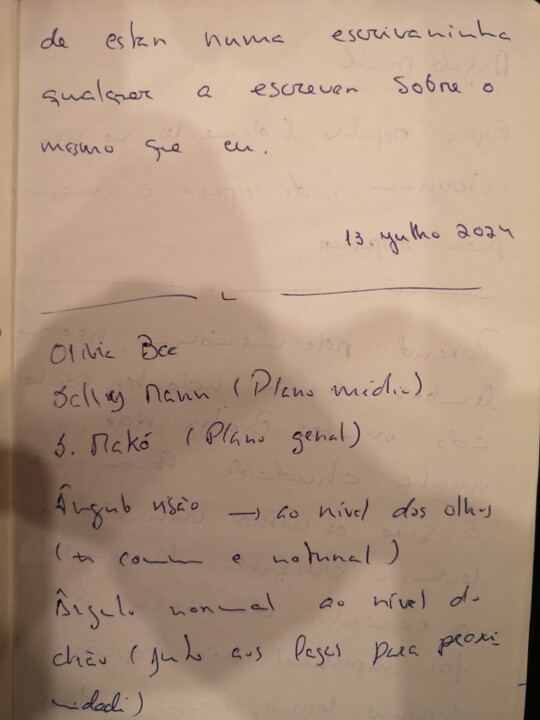 de estar numa escrivaninha
qualquer a escrever sobre o
mesmo que eu.
13. julho 2024
Olivia Bee
Sally Mann (Plano médio)
S. Makó (Plano geral)
Ângulo visão → ao nível dos olhos
(+ comum e natural)
Ângulo normal ao nível do
chão (junto aos para proxi
midade)